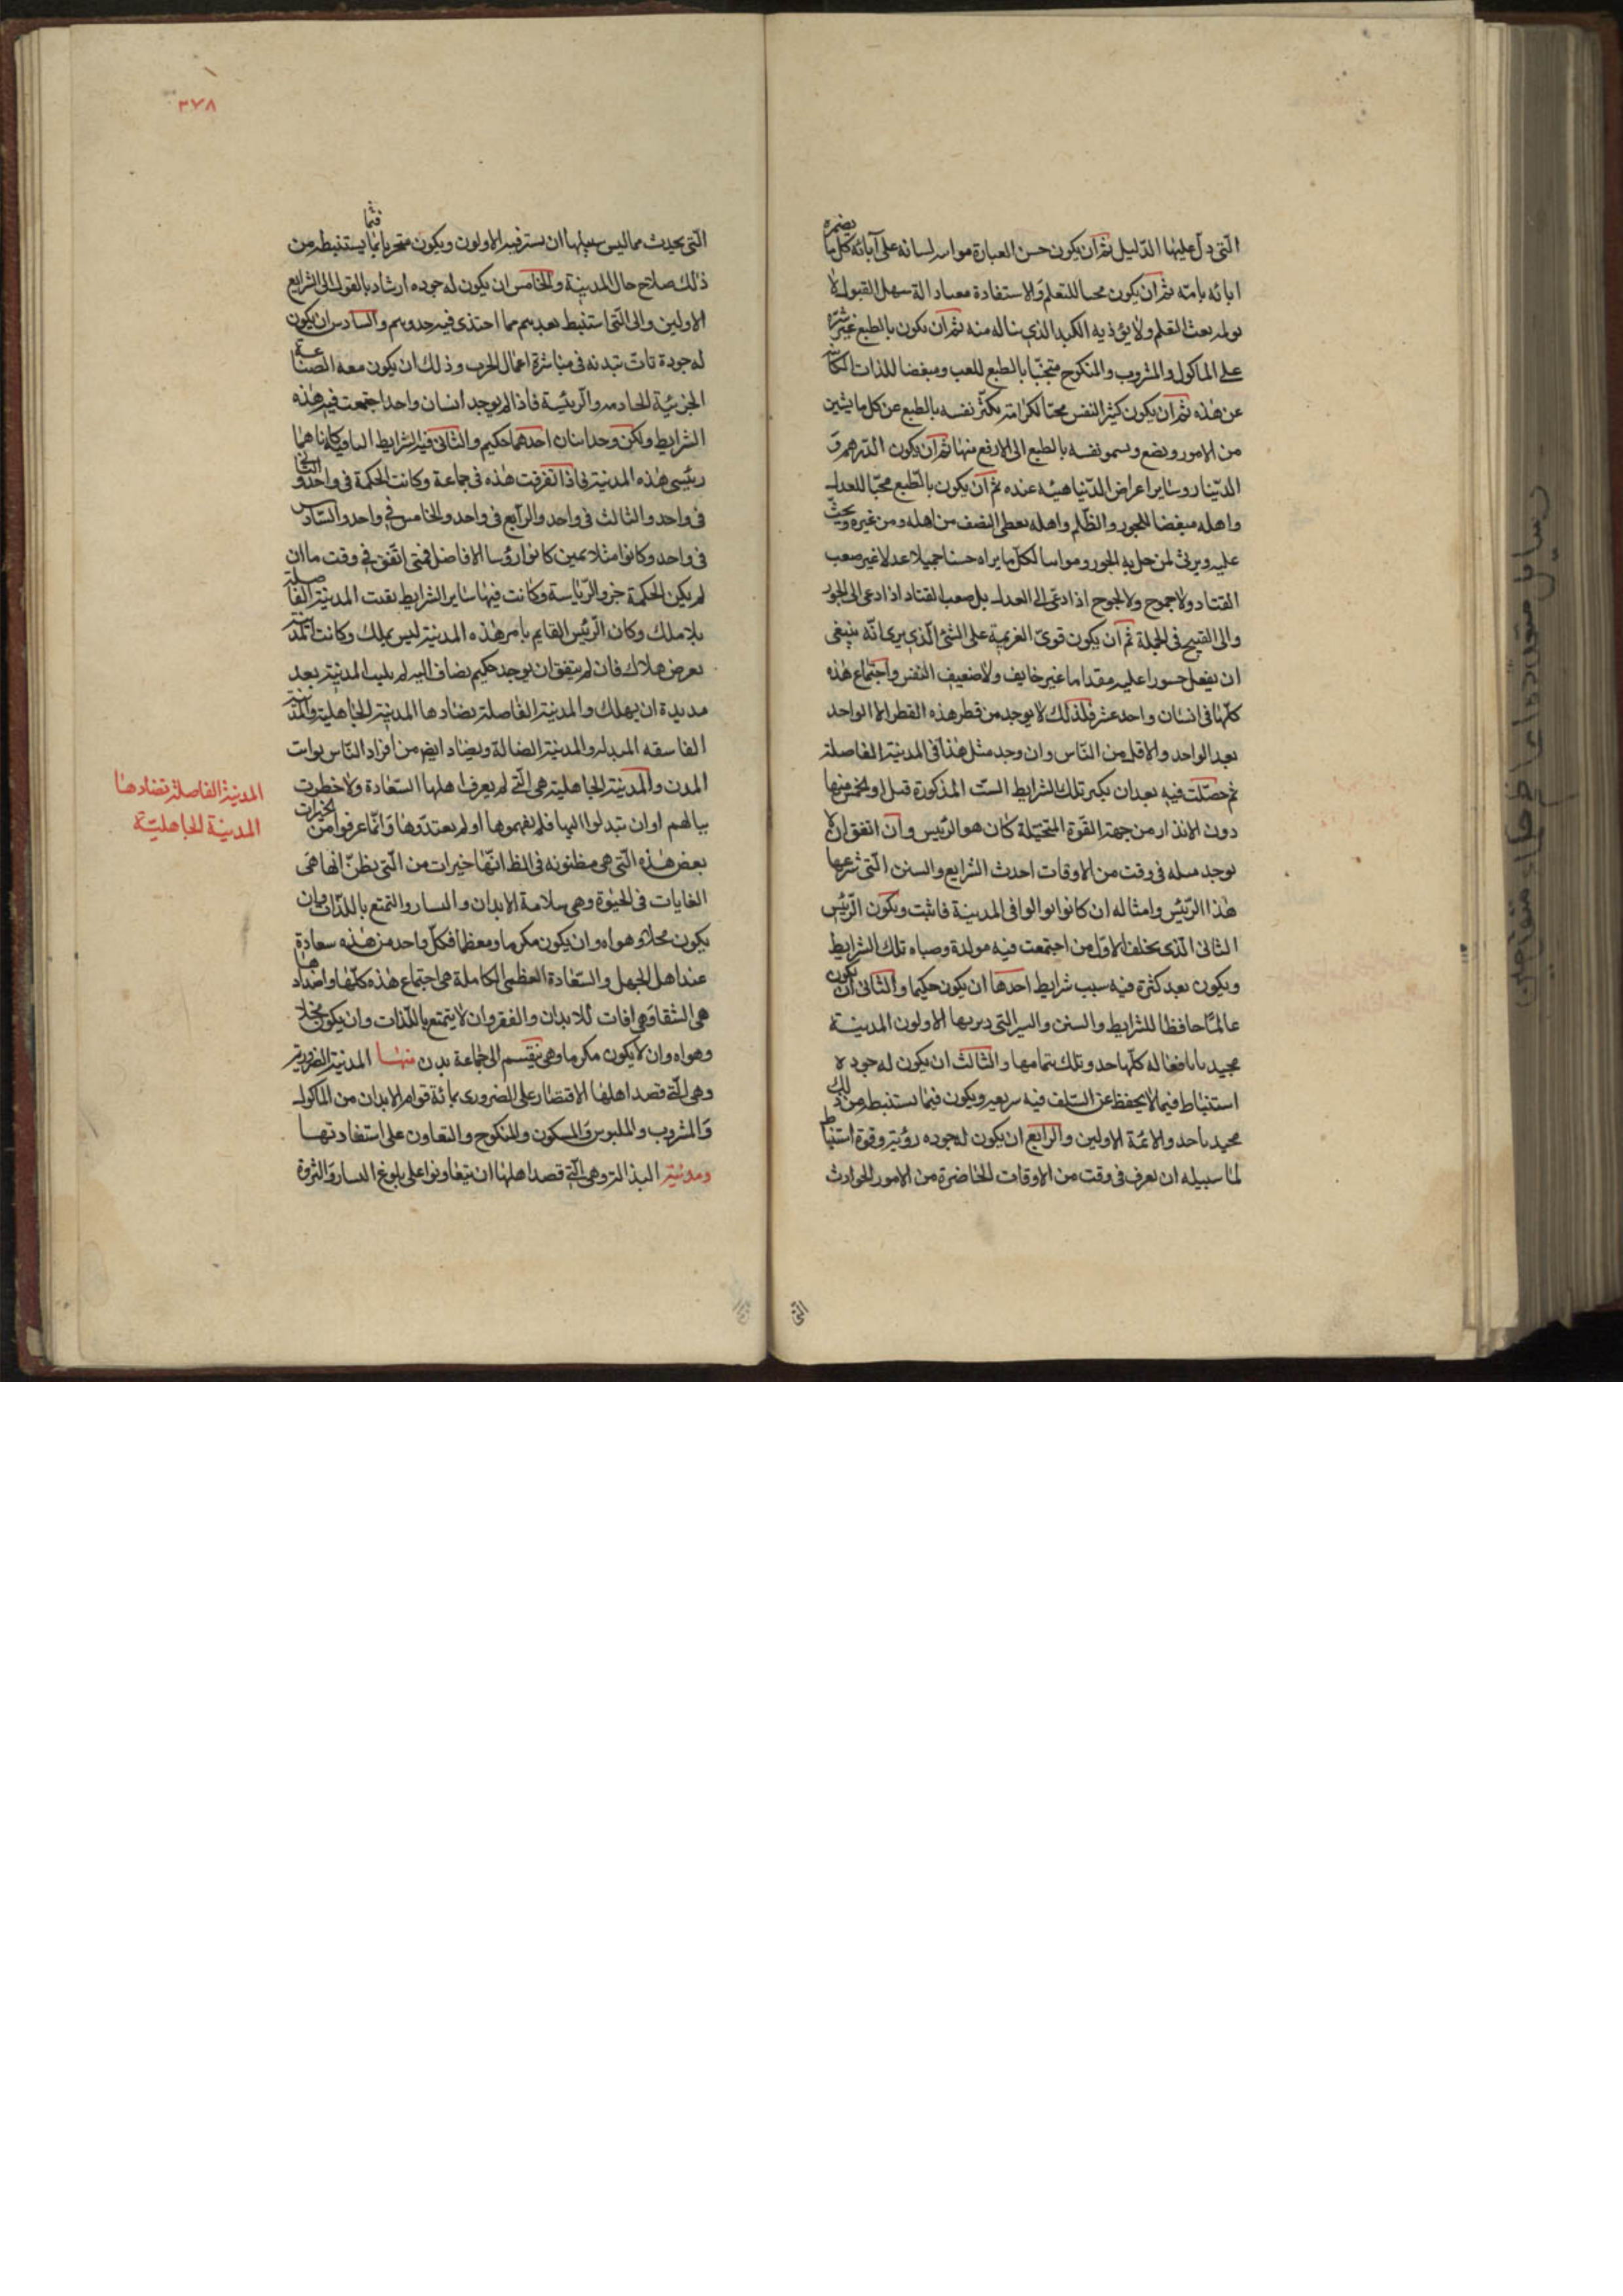 التى دل عليها الدليل ثم ان يكون حسن العبارة مواته لسانه على آبائه كل ما يضمره
ابائه بامته ثم ان يكون محبا للتعلم والاستفادة معتادا له سهل القبول لا
يولمه بعث التعلم ولا يؤذيه الكد الذى يناله منه ثم ان يكون بالطبع غير شره
على الماكول والمشروب والمنكوح متجنبا بالطبع للعب ومبغضا للذات الكائنة
عن هذه ثم ان يكون كبير النفس محبا لكرامة تكبر نفسه بالطبع عن كل ما يشين
من الامور ويضع ويسمو نفسه بالطبع الى الارفع منها ثم ان يكون الدرهم و
الدينار وساير اعراض الدنيا هينة عنده ثم ان يكون بالطبع محبا للعدل
واهله مبغضا للجور والظلم واهله يعطى النصف من اهله ومن غيره ويحث
عليه ويرثى لمن حل به الجور ومواسا لكل ما يراه حسنا جميلا عدلا غير صعب
القتاد ولا جموح ولا لجوج اذا دعى الى العدل بل صعب القتاد اذا دعى الى الجور
والى القبيح فى الجملة ثم ان يكون قوى الغريمة على الشئ الذى يرى انه ينبغى
ان يفعل جسورا عليه مقداما غير خايف ولا ضعيف النفس واجتماع هذه
كلها فى انسان واحد عشر فلذلك لا يوجد من قطر هذه القطر الا الواحد
بعد الواحد والاقل من الناس وان وجد مثل هذا فى المدينة الفاصلة
ثم حصلت فيه بعد ان يكبر تلك الشرايط الست المذكورة قبل او الخمس منها
دون الانذار من جهة القوة المتخيلة كان هو الرئيس وان اتفق ان لا
يوجد مثله فى وقت من الاوقات احدث الشرايع والسنن التى شرعها
هذا الرئيس وامثاله ان كانوا توالوا فى المدينة فاثبت ويكون الرئيس
الثانى الذى يخلف الاول من اجتمعت فيه مولدة وصباه تلك الشرايط
ويكون بعد كثرة فيه سبب شرايط احدها ان يكون حكيما والثانى ان يكون
عالما حافظا للشرايط والسنن والسير التى دبربها الاولون المدينة
مجيدا بافعاله كلها حدو تلك بتمامها والثالث ان يكون له جوده
استنباط فيما لا يحفظ عن السلف فيه شريعه ويكون فيما يستنبط من ذلك
محيدبا حدو الائمة الاولين والرابع ان يكون له جوده روية وقوة استنباط
لما سبيله ان يعرف فى وقت من الاوقات الحاضرة من الامور الحوادث
التى
٣٧٨
التى يحدث مما ليس سبيلها ان يسترفيه الاولون ويكون متحريا فيما يستنبطه من
ذلك صلاح حال المدينة والخامس ان يكون له جوده ارشاد بالقول الى الشرايع
الاولين والى التى استنبط بعدهم مما احتذى فيه حدوهم والسادس ان يكون
له جودة تات ببدنه فى مباشرة اعمال الحرب وذلك ان يكون معه الصناعة
الجزئية الخادمه والرئيسة فاذا لم يوجد انسان واحد اجتمعت فيه هذه
الشرايط ولكن وجد اثنان احدهما حكيم والثانى فيه الشرايط الباقية كانا هما
رئيسى هذه المدينة فاذا تفرقت هذه فى جماعة وكانت الحكمة فى واحد والثانى
فى واحد والثالث فى واحد والرابع فى واحد والخامس فى واحد والسادس
فى واحد وكانوا متلائمين كانوا رؤسا الافاضل فمتى اتفق فى وقت ما ان
لم يكن الحكمة جزو الرياسة وكانت فيها ساير الشرايط بقيت المدينة الفاصلة
بلا ملك وكان الرئيس القايم بامر هذه المدينة ليس بملك وكانت المدينة
تعرض هلاك فان لم يتفق ان يوجد حكيم يضاف اليه لم يلبث المدينة بعد
مديدة ان يهلك والمدينة الفاصلة يضادها المدينة الجاهلية والمدينة
الفاسقه المبدله والمدينة الضالة ويضاد ايضا من افراد الناس نوابت
المدن والمدينة الجاهلية هى التى لم يعرف اهلها السعادة ولا خطرت
ببالهم او ان بتدلوا اليها فلم يفهموها او لم يعتدوها وانما عرفوا من الخيرات
بعض هذه التى هى مظنونه فى الظ انها خيرات من التى يظن انها هى
الغايات فى الحيوة وهى سلامة الابدان واليسار والتمتع باللذات وان
يكون مخلا وهواه وان يكون مكرما ومعظما فكل واحد من هذه سعادة
عند اهل الجهل والسعادة العظمى الكاملة هى اجتماع هذه كلها واضدادها
هى الشقا وهى افات للابدان والفقر وان لا يتمتع باللذات وان يكون مخلا
وهواه وان لا يكون مكرما وهى تقسم الى جماعة بدن منها المدينة الضرورية
وهى التى قصد اهلها الاقتصار على الضرورى بمائة قوام الابدان من الماكول
والمشروب والملبوس والمسكون والمنكوح والتعاون على استفادتها
ومدينة البذالة وهى التى قصد اهلها ان يتعاونوا على بلوغ اليسار والثروة
المدينة الفاصلة تضادها
المدينة الجاهلية